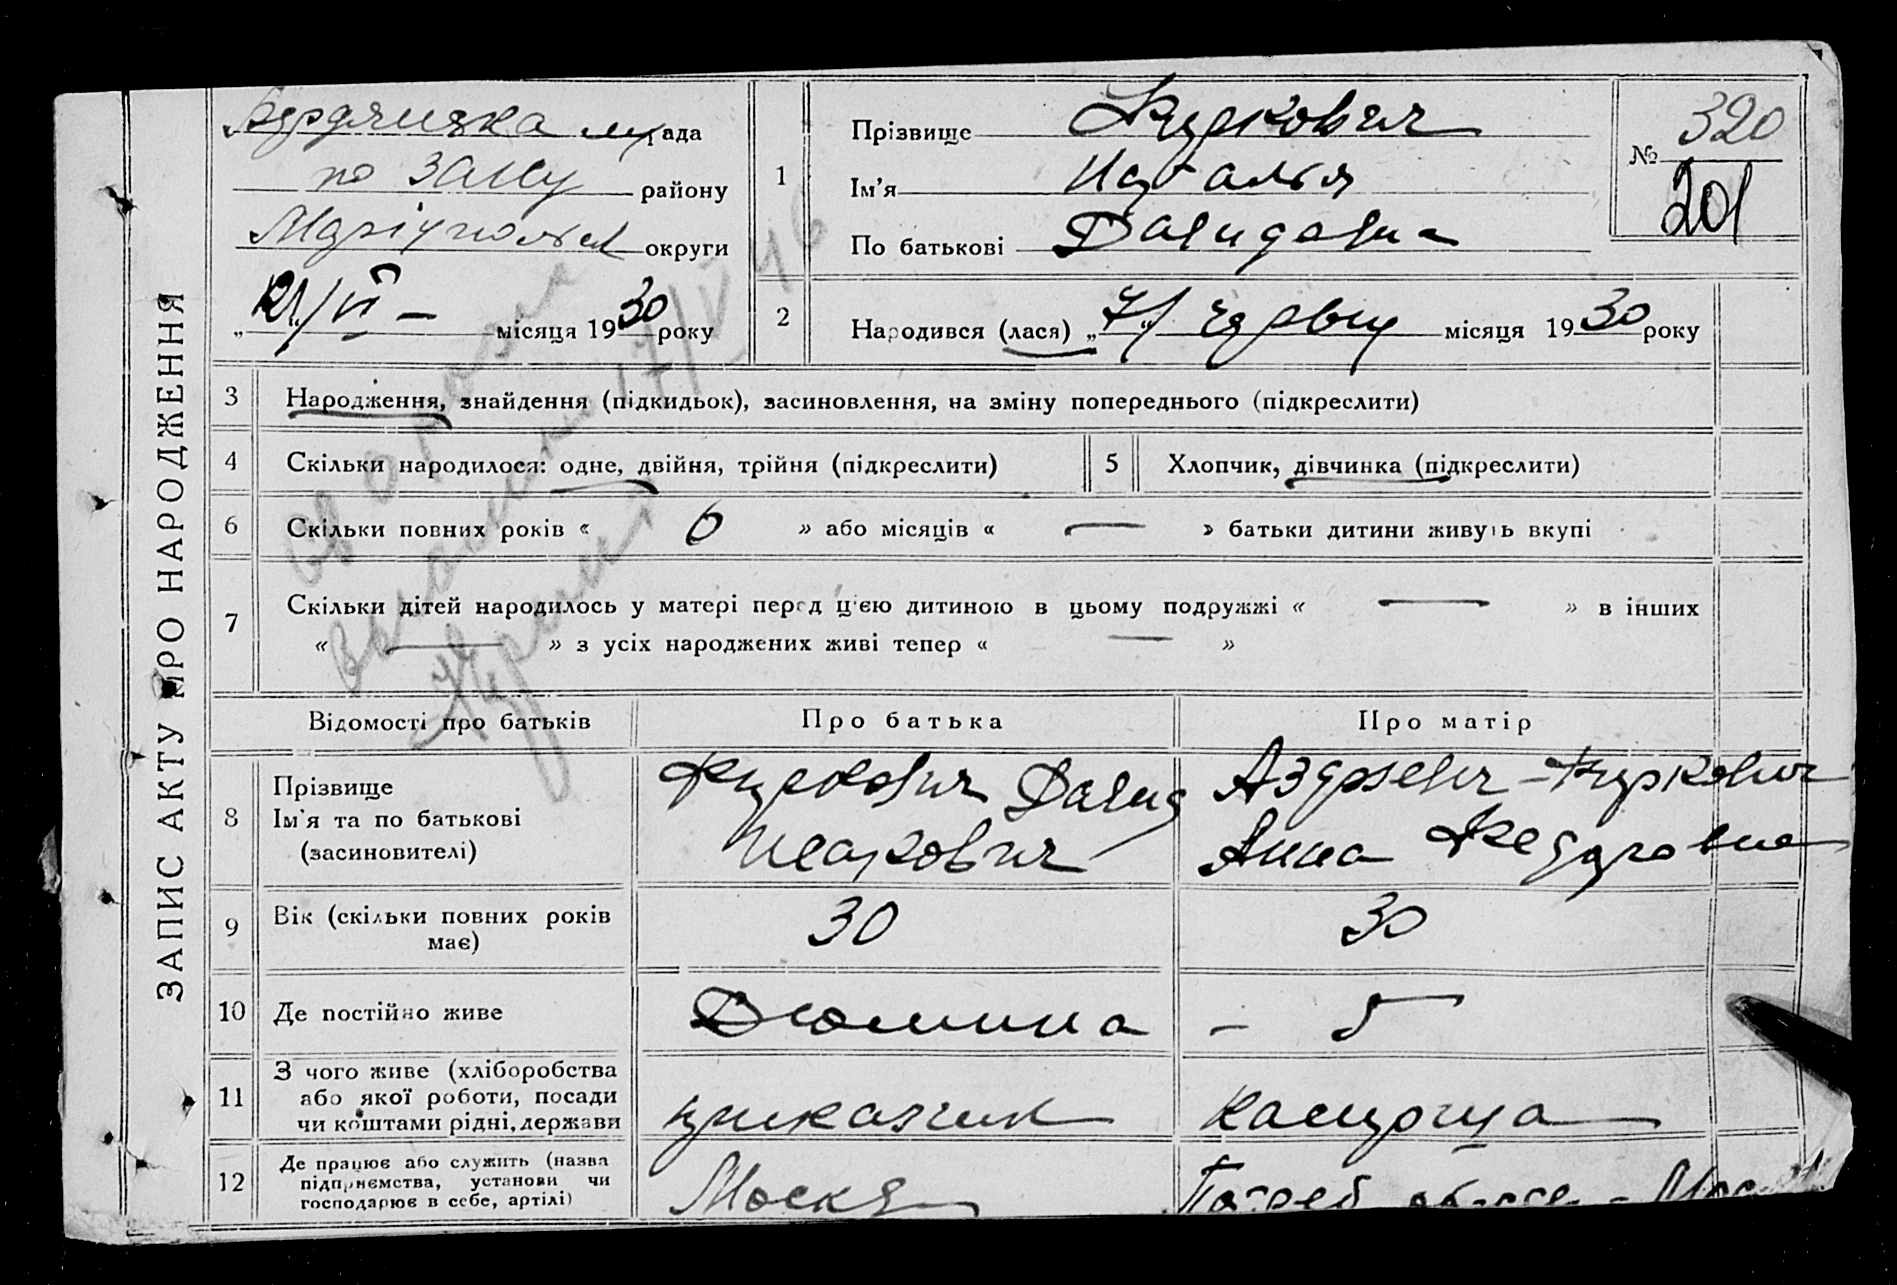 ЗАПИС АКТУ ПРО НАРОДЖЕННЯ
Бердянська м рада
по ЗАГСу району
Маріупольск округи
„ 12 “ / VI – місяця 1930 року
1
Прізвище Куркович
Ім’я Наталья
По батькові Давидовна
№ 320
201
2
Народився (лася) „ 7 “ червня місяця 1930 року
3
Народження, знайдення (підкидьок), засиновлення, на зміну попереднього (підкреслити)
4
Скільки народилося: одне, двійня, трійня (підкреслити)
5
Хлопчик, дівчинка (підкреслити)
6
Скільки повних років « 6 » або місяців « — » батьки дитини живуть вкупі
7
Скільки дітей народилось у матері перед цією дитиною в цьому подружжі « — » в інших
« — » з усіх народжених живі тепер « — »
Відомості про батьків
Про батька
Про матір
8
Прізвище
Ім'я та по батькові
(засиновителі)
Куркович Давид
Исакович
Куркович
Анна Федоровна
9
Вік (скільки повних років
має)
30
30
10
Де постійно живе
– 5
11
З чого живе (хліборобства
або якої роботи, посади
чи коштами рідні, держави
приказчик
касирша
12
Де працює або служить (назва
підприємства, установи чи
господарює в себе, артілі)
Москва
Потреб. общес. – Мос